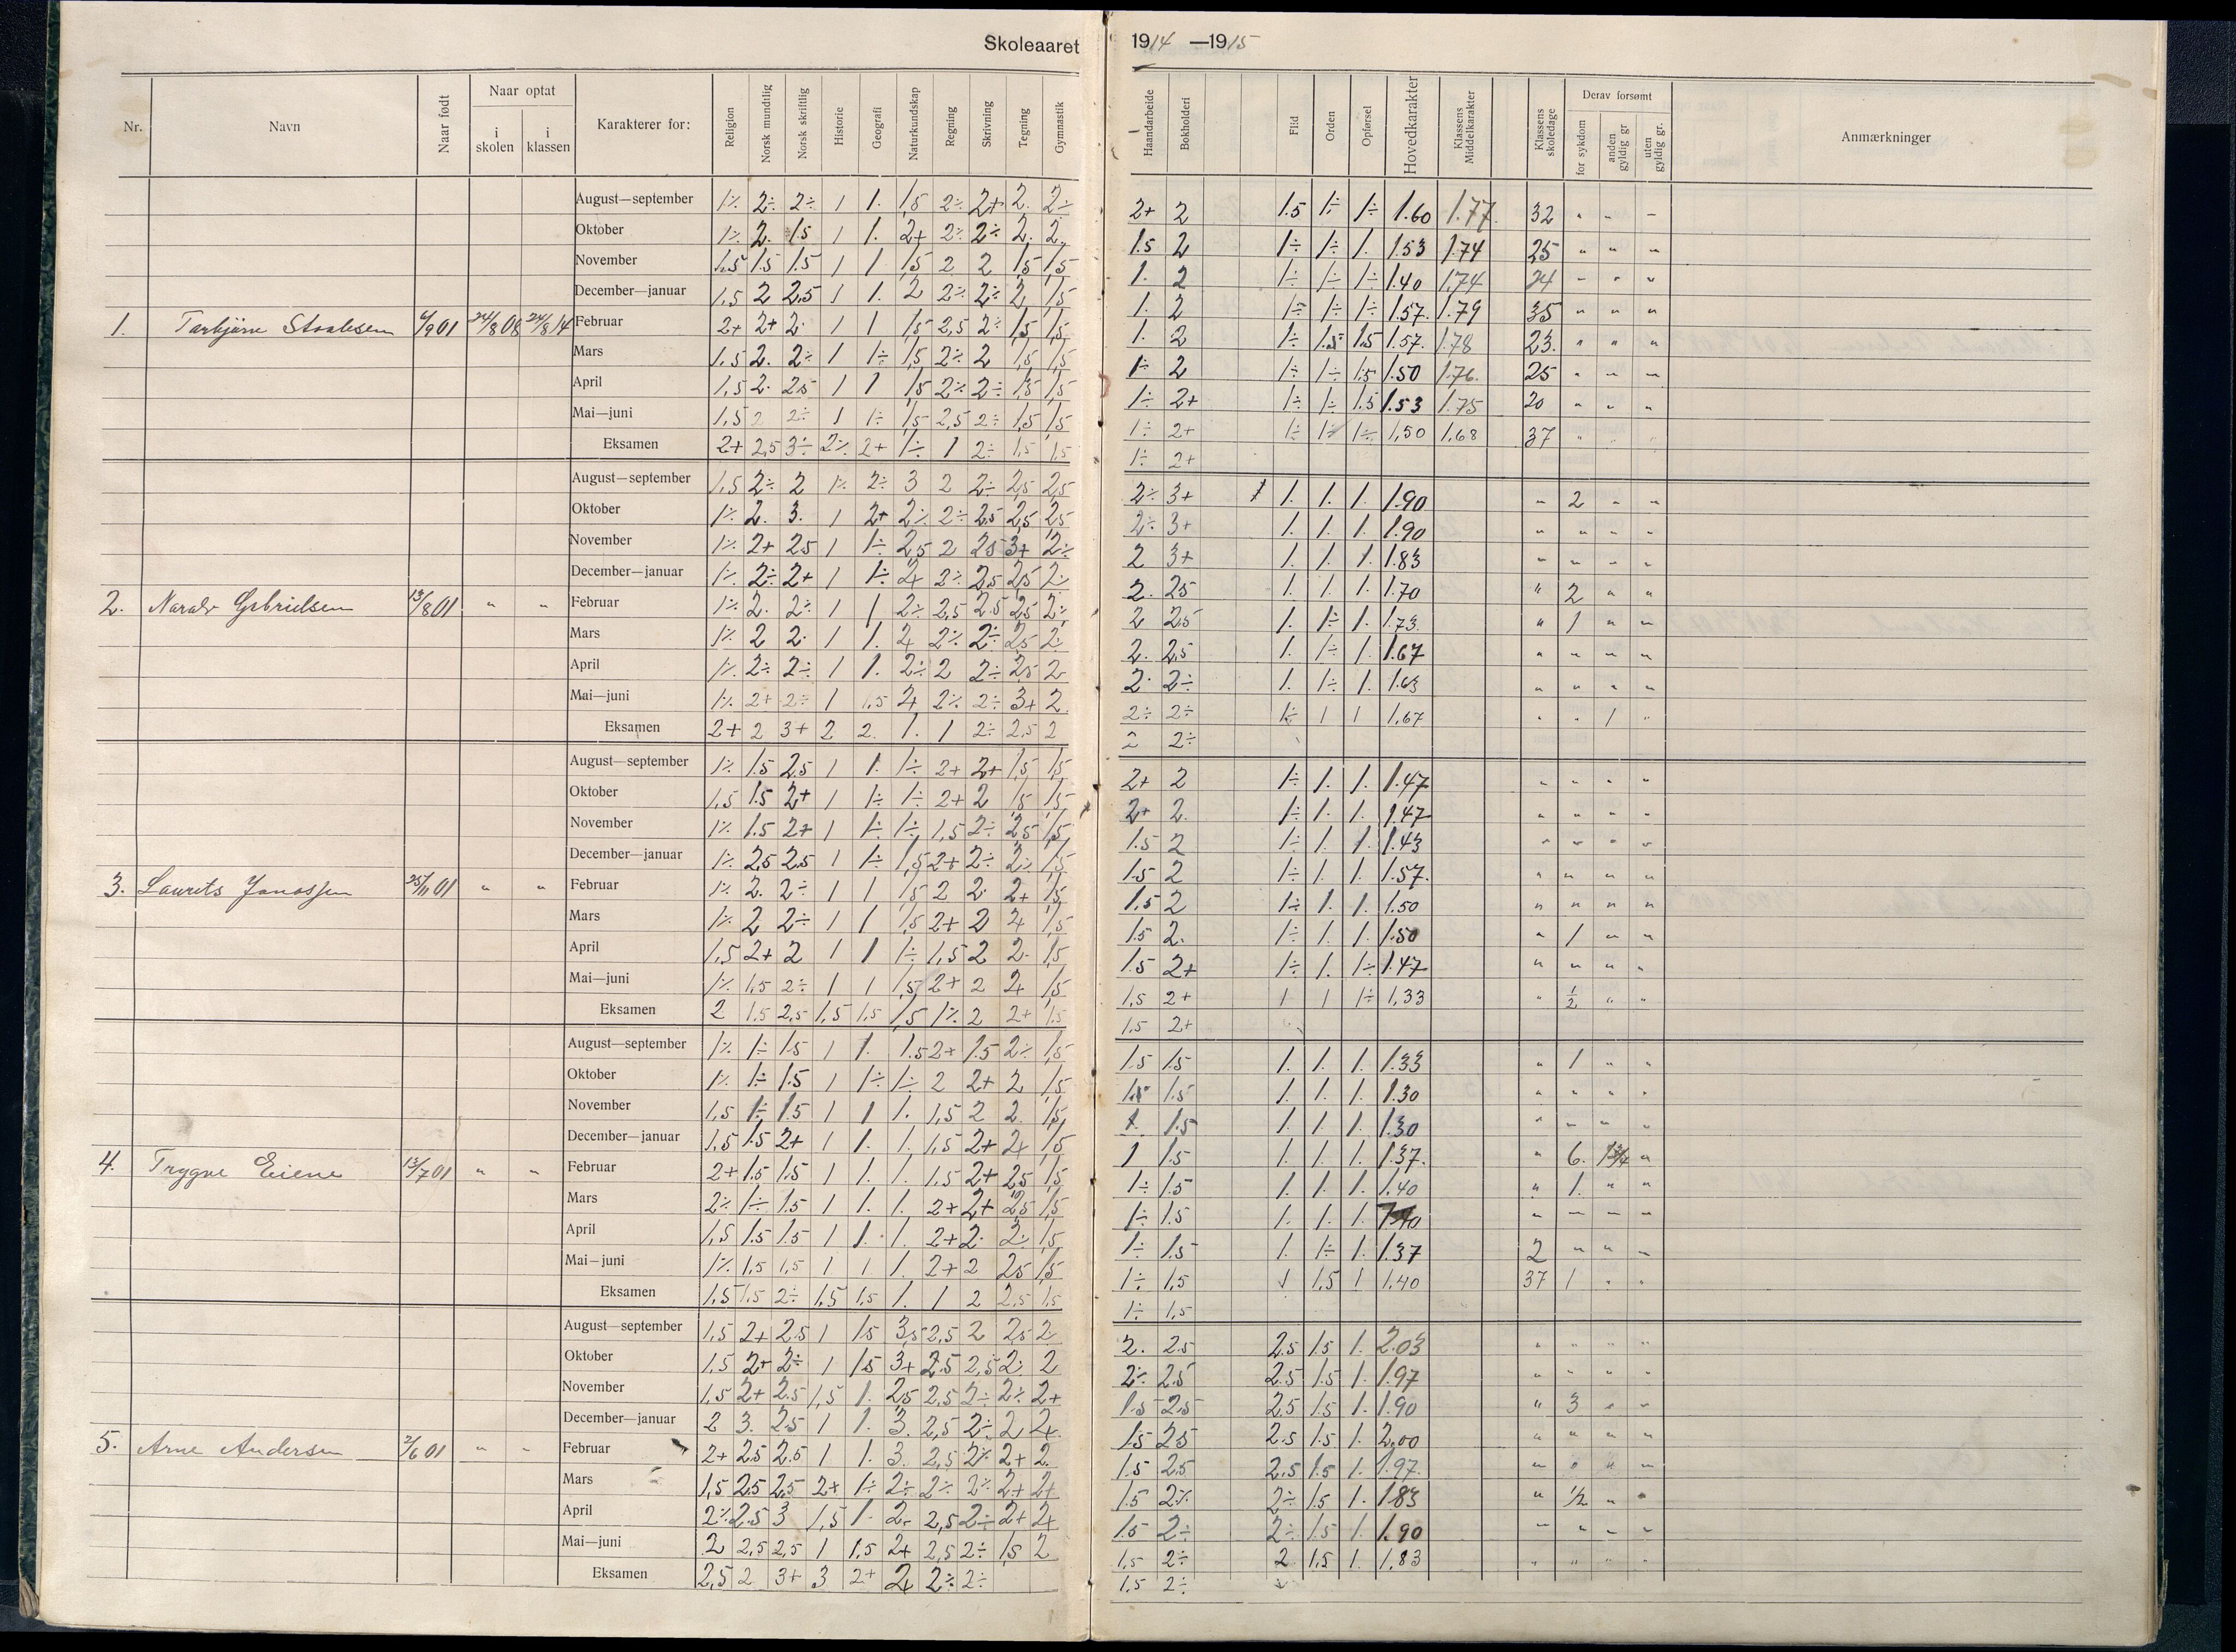 Skoleaaret 1914 —1915
Nr. Navn Naar født Naar optat i skolen i klassen Karakterer for: Religion Norsk mundtlig Norsk skriftlig Historie Geografi Naturkundskap Regning Skrivning Tegning Gymnastik Handarbeide Bokholderi Flid Orden Opførsel Hovedkarakter Klassens Middelkarakter Klassens skoledage Derav forsømt for sykdom anden gyldig gr uten gyldig gr. Anmærkninger
August—september 1÷ 2÷ 2÷ 1 1. 1,5 2÷ 2+ 2. 2÷ 2+ 2 1.5 1÷ 1÷ 1.60 1.77 32 " " "
Oktober 1÷ 2. 1.5 1 1. 2+ 2÷ 2÷ 2. 2. 1.5 2 1÷ 1÷ 1. 1.53 1.74 25 " " "
November 1.5 1.5 1.5 1 1 1,5 2 2 1,5 1,5 1. 2 1÷ 1÷ 1÷ 1.40 1.74 24 " " "
December—januar 1,5 2 2,5 1 1. 2 2÷ 2÷ 2 1,5 1. 2 1÷ 1÷ 1÷ 1.57. 1.79 35 " " "
1. Torbjørn Staalesen 24/8 08 24/8 14 Februar 2+ 2+ 2. 1 1 1,5 2,5 2÷ 1,5 1,5 1. 2 1÷ 1.5 1.5 1.57. 1.78 23. " " "
Mars 1,5 2. 2÷ 1 1÷ 1,5 2÷ 2 1,5 1,5 1÷ 2 1÷ 1÷ 1.5 1.50 1.76. 25 " " "
April 1,5 2. 2.5 1 1 1,5 2÷ 2÷ 1,5 1,5 1÷ 2+ 1÷ 1÷ 1.5 1.53 1.75 20 " " "
Mai—juni 1,5 2 2÷ 1 1÷ 1,5 2,5 2÷ 1,5 1,5 1÷ 2+ 1÷ 1÷ 1÷ 1,50 1,68 37 " " "
Eksamen 2+ 2,5 3÷ 2÷ 2+ 1÷ 1 2÷ 1,5 1,5 1÷ 2+
August—september 1,5 2÷ 2 1÷ 2÷ 3 2 2÷ 2,5 2,5 2÷ 3+ 1. 1. 1. 1.90 " 2 " "
Oktober 1÷ 2. 3. 1 2+ 2÷ 2÷ 2.5 2,5 2,5 2÷ 3+ 1. 1. 1. 1.90 " " " "
November 1÷ 2+ 2.5 1 1÷ 2,5 2 2.5 3+ 2÷ 2 3+ 1. 1. 1. 1.83 " " " "
December—januar 1÷ 2÷ 2+ 1 1÷ 2+ 2÷ 2,5 2,5 2. 2. 2.5 1. 1. 1. 1.70 " 2 " "
2. Gabrielsen 13/8 01 " " Februar 1÷ 2. 2÷ 1 1 2÷ 2,5 2.5 2,5 2÷ 2 2.5 1. 1÷ 1. 1.73. " 1 " "
Mars 1÷ 2 2. 1 1. 2+ 2÷ 2÷ 2,5 2. 2. 2,5 1. 1÷ 1. 1.67 " " " "
April 1÷ 2÷ 2÷ 1 1. 2÷ 2 2÷ 2,5 2 2. 2÷ 1. 1÷ 1. 1.63 " " " "
Mai—juni 1÷ 2+ 2÷ 1 1,5 2+ 2÷ 2÷ 3+ 2 2÷ 2÷ 1÷ 1 1 1,67 " " 1 "
Eksamen 2+ 2 3+ 2 2. 1. 1 2÷ 2,5 2 2 2÷
August—september 1÷ 1.5 2.5 1 1. 1÷ 2+ 2+ 1,5 1,5 2+ 2 1÷ 1. 1. 1.47 " " " "
Oktober 1,5 1.5 2+ 1 1÷ 1÷ 2+ 2 1,5 1,5 2+ 2. 1÷ 1. 1. 1.47 " " " "
November 1÷ 1.5 2+ 1 1÷ 1÷ 1,5 2÷ 2,5 1,5 1.5 2 1÷ 1. 1. 1.43 " " " "
December—januar 1÷ 2.5 2.5 1 1÷ 1,5 2+ 2÷ 2÷ 1,5 1.5 2 1÷ 1. 1. 1.57. " " " "
3. Laurits Jonassen 25/11 01 " " Februar 1÷ 2. 2÷ 1 1 1,5 2 2. 2+ 1,5 1.5 2 1÷ 1. 1. 1.50 " " " "
Mars 1÷ 2 2÷ 1 1 1,5 2+ 2 2+ 1,5 1.5 2. 1÷ 1. 1. 1.50 " 1 " "
April 1,5 2+ 2 1 1 1÷ 1,5 2 2. 1,5 1.5 2+ 1÷ 1. 1÷ 1.47 " " " "
Mai—juni 1÷ 1,5 2÷ 1 1 1,5 2+ 2 2+ 1,5 1,5 2+ 1 1 1÷ 1,33 " 1/2 " "
Eksamen 2 1,5 2,5 1,5 1,5 1,5 1÷ 2 2+ 1,5 1,5 2+
August—september 1÷ 1÷ 1.5 1 1. 1.5 2+ 1.5 2÷ 1,5 1.5 1.5 1. 1. 1. 1.33 " 1 " "
Oktober 1÷ 1÷ 1.5 1 1÷ 1÷ 2 2+ 2 1,5 1.5 1.5 1. 1. 1. 1.30 " " " "
November 1,5 1÷ 1.5 1 1 1. 1,5 2 2 1,5 1. 1.5 1. 1. 1. 1.30 " " " "
December—januar 1,5 1.5 2+ 1 1. 1. 1,5 2+ 2+ 1,5 1 1.5 1. 1. 1. 1.37. " 6. "
4. Trygve Eiene 13/7 01 " " Februar 2+ 1.5 1.5 1 1. 1. 1,5 2+ 2,5 1,5 1÷ 1.5 1. 1. 1. 1.40 " 1. " "
Mars 2÷ 1÷ 1.5 1 1. 1. 2+ 2+ 2,5 1,5 1÷ 1.5 1. 1. 1. " " " "
April 1,5 1.5 1.5 1 1. 1. 2+ 2. 2÷ 1,5 1÷ 1.5 1. 1÷ 1. 1.37 2 " " "
Mai—juni 1÷ 1,5 1,5 1 1 1. 2+ 2 2,5 1,5 1÷ 1,5 1 1,5 1 1,40 37 1 " "
Eksamen 1,5 1,5 2÷ 1,5 1,5 1. 1 2 2,5 1,5 1÷ 1,5
August—september 1,5 2+ 2.5 1 1.5 3,5 2,5 2 2,5 2 2. 2.5 2.5 1.5 1. 2.03 " " " "
Oktober 1,5 2+ 2÷ 1 1.5 3+ 2.5 2,5 2. 2 2÷ 2.5 2.5 1.5 1. 1.97 " " " "
November 1,5 2+ 2.5 1,5 1. 2,5 2,5 2÷ 2÷ 2+ 1.5 2.5 2.5 1.5 1. 1.90 " 3 " "
December—januar 2 3. 2.5 1 1. 3. 2,5 2÷ 2 2+ 1.5 2.5 2.5 1.5 1. 2,00 " " " "
5. Arne Andersen 2/6 01 " " Februar 2+ 2.5 2.5 1 1. 3. 2,5 2÷ 2+ 2. 1.5 2.5 2.5 1.5 1. 1.97. " " " "
Mars 1,5 2.5 2.5 2+ 1÷ 2÷ 2÷ 2÷ 2+ 2+ 1.5 2÷ 2÷ 1.5 1. 1.83 " 1/2 " "
April 2÷ 2.5 3 1,5 1. 2÷ 2,5 2÷ 2+ 2+ 1.5 2÷ 2÷ 1.5 1. 1.90 " " " "
Mai—juni 2 2,5 2,5 1 1,5 2+ 2,5 2÷ 1,5 2 1,5 2÷ 2 1,5 1. 1,83 " " " "
Eksamen 2,5 2 3+ 3 2+ 2+ 2÷ 2÷ 1,5 2÷